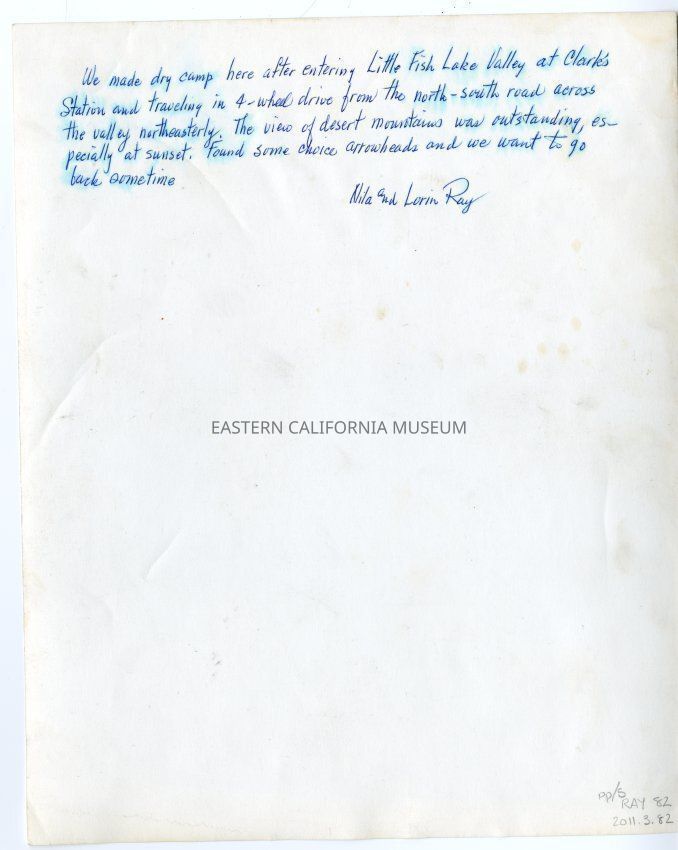 We made dry camp here after entering Little Fish Lake Valley at Clark's
Station and traveling in 4-wheel drive from the north-south road across
the valley northeasterly. The view of desert mountains was outstanding, es-
pecially at sunset. Found some choice arrowheads and we want to go
back sometime
Nila and Lorin Ray
EASTERN CALIFORNIA MUSEUM
PP/S
RAY 82
2011.3.82